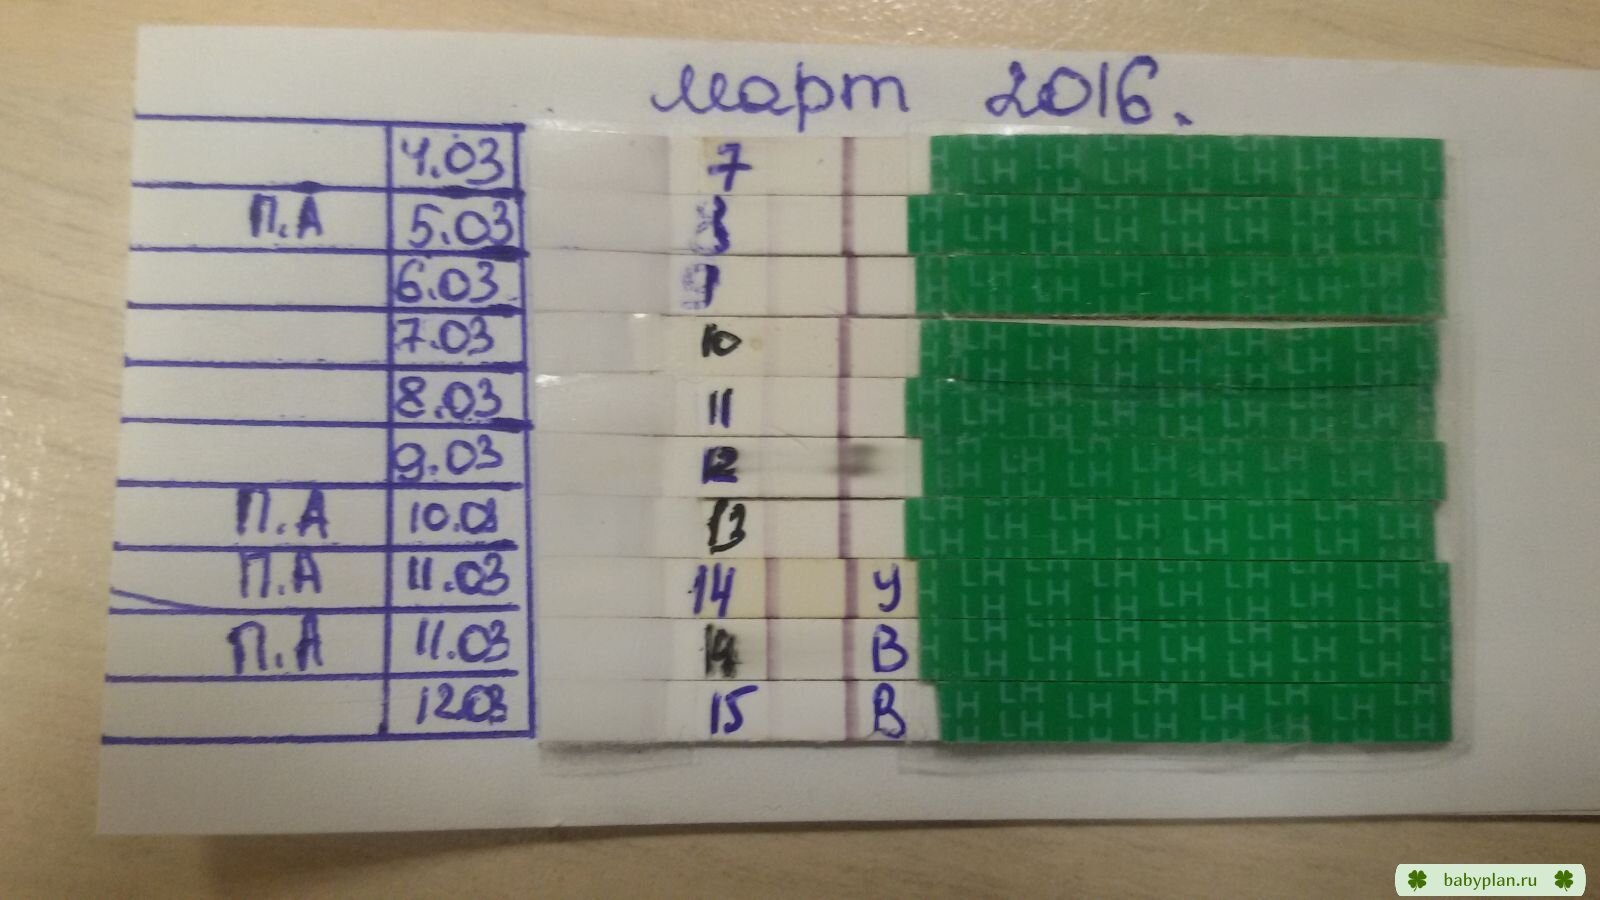 март 2016.
4.03 7
П.А 5.03
6.03
7.03 10
8.03 11
9.03 12
П.А 10.03 13
П.А 11.03 14 У
П.А 11.03 14 В
12.03 15 В
LH LH LH LH LH LH LH LH
babyplan.ru